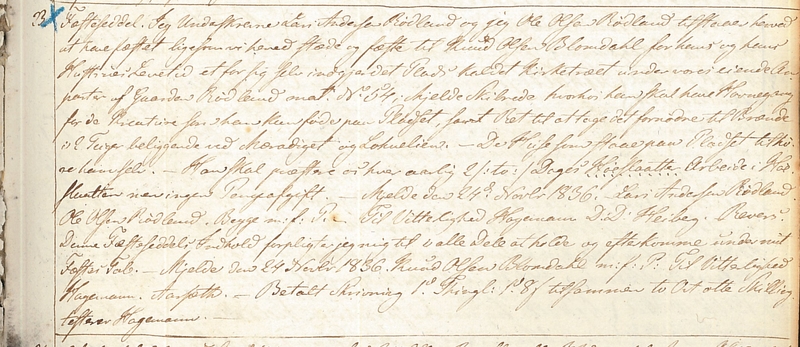 3. Fæsteseddel. Jeg Underskrevne Lars Andersen Rødland og jeg Ole Olsen Rødland tilstaae herved
at have fæstet ligesom vi herved stæde og fæste til Knud Olsen Blomdahl for hans og hans
Hustrues Levetid et for sig selv indgjerdet Plads kaldet Kirketræet under vores eiende An-
parter af Gaarden Rødland mat. No 54 i Mjelde Skibrede hvorhos han skal have Havnegang
for de Kreature som han kan føde paa Pladset, samt Ret til at tage det fornødne til Brænde
i 2 Teiger beliggende ved og . — De Huse som staae paa Pladset tilhø-
re ham selv. — Han skal præstere os hver aarlig 2 /: to :/ Dages Arbeide i
Slaatten men ingen Pengeafgift. — Mjelde den 24de Novbr 1836. Lars Andersen Rødland.
Ole Olsen Rødland. Begge m. f. P. — Til Vitterlighed Hagemann. D. D. Heiberg. Revers.
Denne Fæsteseddels Indhold forpligter jeg mig til i alle Dele at holde og efterkomme under mit
Fæstes Tab. — Mjelde den 24 Novbr 1836. Knud Olsen Blomdahl m. f. P: Til Vitterlighed
Hagemann. Aarseth. — Betalt Skrivning 1 Thingl: 1 8 s tilsammen to Ort otte Skilling
testerer Hagemann. —